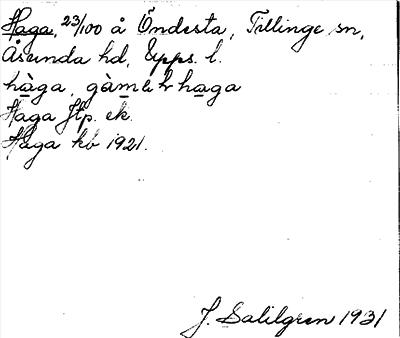 Haga, 23/100 å Öndesta, Tillinge sn,
Åsunda hd, Upps. l.
hàga, gàmḷhaga
Haga Jlp. ek.
Haga kb 1921.
J. Sahlgren 1931